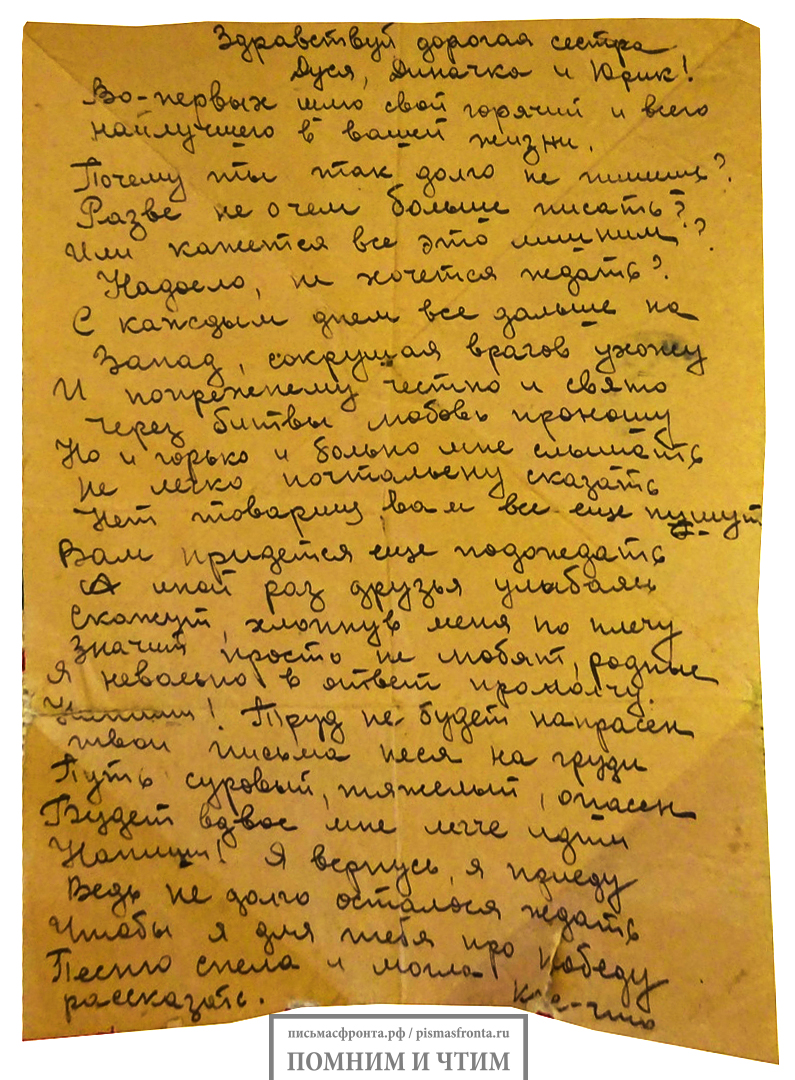 Здравствуй дорогая сестра
Дуся, Диначка и Юрик!
Во-первых шлю свой горячий и всего
найлучшего в вашей жизни.
Почему ты так долго не пишешь?
Разве не о чем больше писать?
Или кажется все это лишним?
Надоело, не хочется ждать?
С каждым днем все дальше на
Запад, сокрущая врагов ухожу
И попрежнему честно и свято
через битвы любовь проношу
Но и горько и больно мне слышать
Не легко почтальену сказать
Нет товарищ, вам все еще пишут
Вам придется еще подождать
А иной раз друзья улыбаясь
Скажут, хлопнув меня по плечу
Значит просто не любят, родные
Я невольно в ответ промолчу.
Напиши! Труд не будет напрасен
твои письма неся на груди
Путь суровый, тяжелый, опасен
Будет вдвое мне легче идти
Напиши! Я вернусь, я приеду
Ведь не долго осталося ждать
Чтобы я для тебя про победу
Песню спела и могла кое-что
рассказать.
письмасфронта.рф / pismasfronta.ru
ПОМНИМ И ЧТИМ